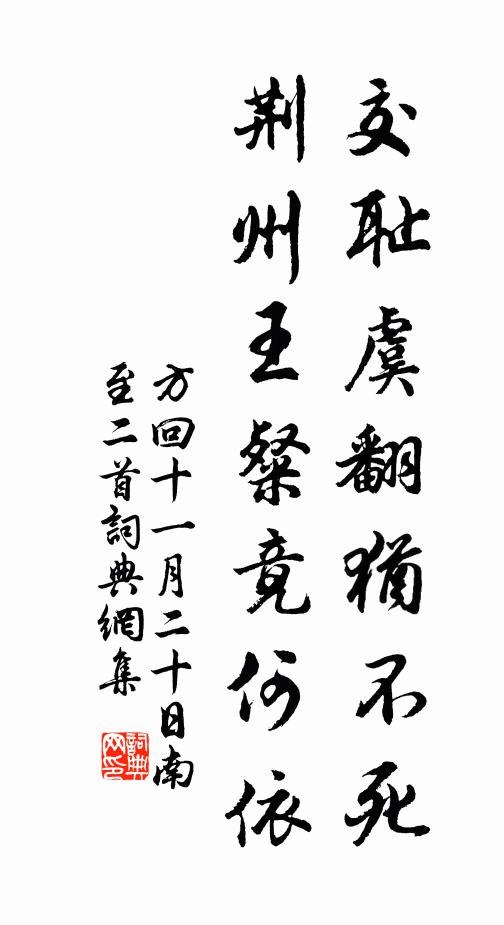 交耻虞翻猶不死
荆州王粲竟何依
方回十一月二十日南
至二首詞典網集
詞典
网印